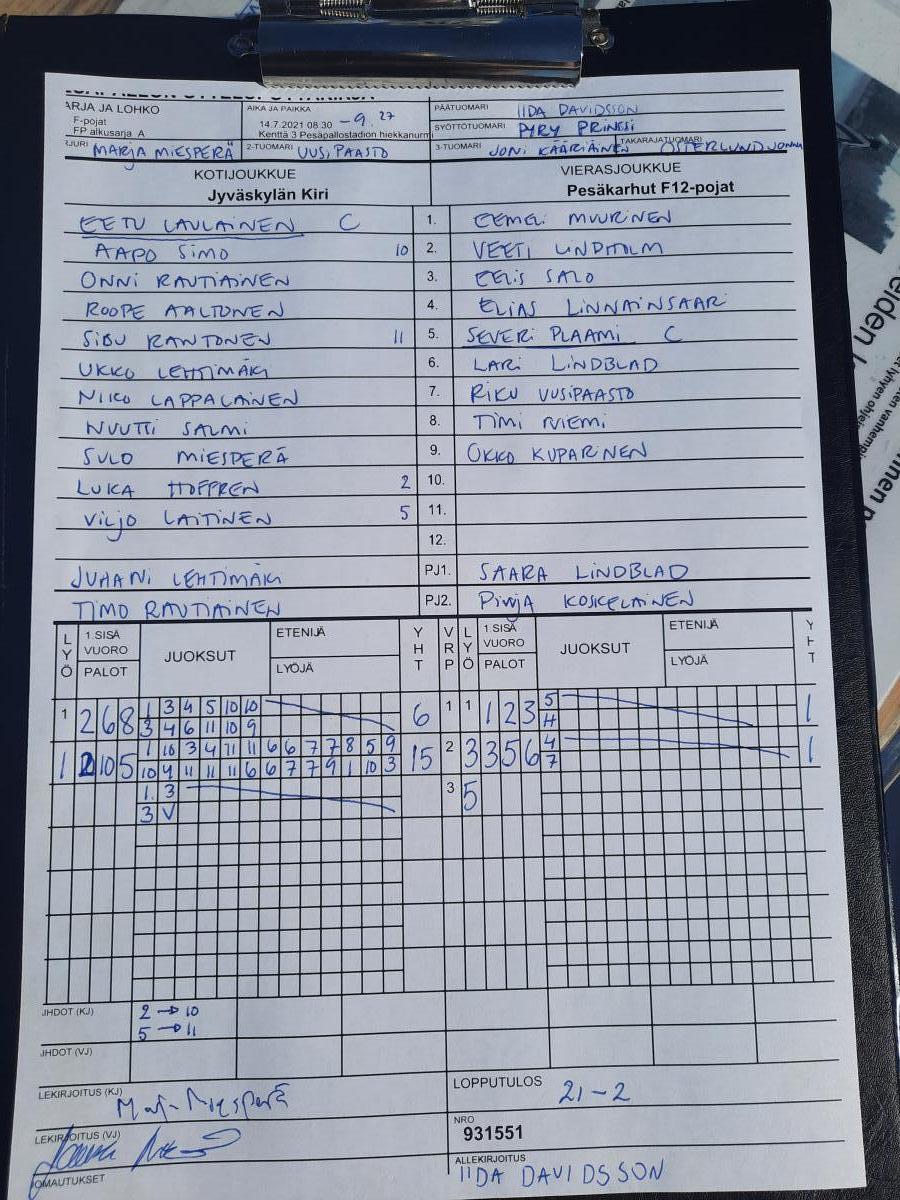 ARJA JA LOHKO
F-pojat
FP alkusarja A
AIKA JA PAIKKA
14.7.2021 08:30 - 9.27
Kenttä 3 Pesäpallostadion hiekkanurmi
PÄÄTUOMARI IIDA DAVIDSSON
SYÖTTÖTUOMARI PYRY PRINSSI
MARJA MIESPERÄ
2-TUOMARI UUSIPAASTO
3-TUOMARI JONI KÄÄRIÄINEN
TAKARAJATUOMARI ÖSTERLUND JONNA
KOTIJOUKKUE
Jyväskylän Kiri
VIERASJOUKKUE
Pesäkarhut F12-pojat
EETU LAULAINEN C 1. EEMELI MUURINEN
AAPO SIMO 10 2. VEETI LINDHOLM
ONNI RAUTIAINEN 3. EELIS SALO
ROOPE AALTONEN 4. ELIAS LINNAINSAARI
SISU RANTONEN 11 5. SEVERI PLAAMI C
UKKO LEHTIMÄKI 6. LARI LINDBLAD
NIILO LAPPALAINEN 7. RIKU UUSIPAASTO
NUUTTI SALMI 8. TIMI NIEMI
SULO MIESPERÄ 9. OKKO KUPARINEN
LUKA HOFFREN 2 10.
VILJO LAITINEN 5 11.
12.
JUHANI LEHTIMÄKI PJ1. SAARA LINDBLAD
TIMO RAUTIAINEN PJ2. PINJA KOSKELAINEN
LYÖ
1.SISÄ VUORO
PALOT
JUOKSUT
ETENIJÄ
LYÖJÄ
YHT
VRP
LYÖ
1.SISÄ VUORO
PALOT
JUOKSUT
ETENIJÄ
LYÖJÄ
YHT
1 2 6 8 1 3 4 5 10 10 6 1 1 1 2 3 5 1
3 4 6 11 10 9 H
1 2 10 5 1 10 3 4 11 11 6 6 7 7 8 5 9 15 2 3 3 5 6 4 1
10 4 11 11 11 6 6 7 7 9 1 10 3 7
1. 3 3 5
3 V
JHDOT (KJ) 2 → 10
5 → 11
JHDOT (VJ)
LEKIRJOITUS (KJ)
LOPPUTULOS 21-2
LEKIRJOITUS (VJ)
NRO
931551
OMAUTUKSET
ALLEKIRJOITUS
IIDA DAVIDSSON